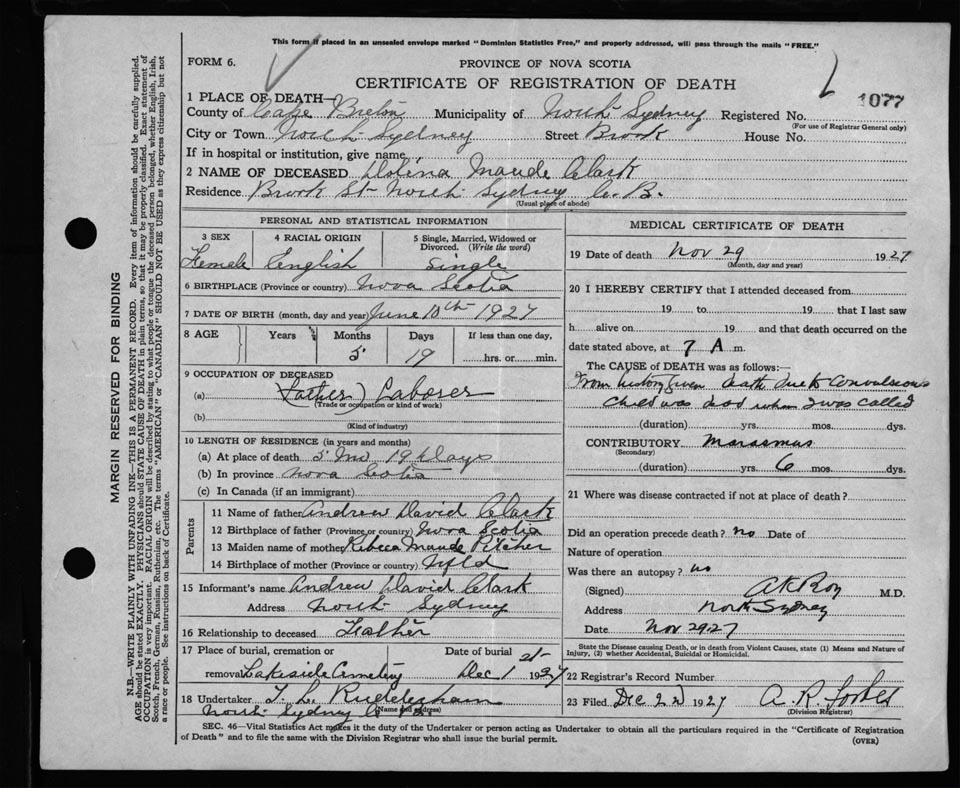 This form if placed in an unsealed envelope marked "Dominion Statistics Free," and properly addressed, will pass through the mails "FREE."
FORM 6.
PROVINCE OF NOVA SCOTIA
CERTIFICATE OF REGISTRATION OF DEATH
1077
1 PLACE OF DEATH—
County of Cape Breton Municipality of North Sydney Registered No.
(For use of Registrar General only)
City or Town North Sydney Street Brook House No.
If in hospital or institution, give name
2 NAME OF DECEASED Dolena Maude Clark
Residence Brook St North Sydney C. B.
(Usual place of abode)
PERSONAL AND STATISTICAL INFORMATION
3 SEX 4 RACIAL ORIGIN 5 Single, Married, Widowed or Divorced. (Write the word)
Female English Single
6 BIRTHPLACE (Province or country) Nova Scotia
7 DATE OF BIRTH (month, day and year) June 10th 1927
8 AGE Years Months Days If less than one day,
5 19 hrs. or min.
9 OCCUPATION OF DECEASED
(a) (Father) Laborer
(Trade or occupation or kind of work)
(b)
(Kind of industry)
10 LENGTH OF RESIDENCE (in years and months)
(a) At place of death 5 Mo 19 Days
(b) In province Nova Scotia
(c) In Canada (if an immigrant)
Parents
11 Name of father Andrew David Clark
12 Birthplace of father (Province or country) Nova Scotia
13 Maiden name of mother Rebecca Maude Pitcher
14 Birthplace of mother (Province or country) Nfld
15 Informant's name Andrew David Clark
Address North Sydney
16 Relationship to deceased Father
17 Place of burial, cremation or Date of burial
removal Lakeside Cemetery Dec 1st 1927
18 Undertaker T. L. Ruddersham
(Name and address)
North Sydney
MEDICAL CERTIFICATE OF DEATH
19 Date of death Nov 29 1927
(Month, day and year)
20 I HEREBY CERTIFY that I attended deceased from
19 to 19 that I last saw
h alive on 19 and that death occurred on
date stated above, at 7 A m.
The CAUSE of DEATH was as follows:
From history given death due to Convulsions
Child was dead when I was called
(duration) yrs. mos. dys.
CONTRIBUTORY Marasmus
(Secondary)
(duration) yrs. 6 mos. dys.
21 Where was disease contracted if not at place of death?
Did an operation precede death? no Date of
Nature of operation
Was there an autopsy? no
(Signed) A K Roy M.D.
Address North Sydney
Date Nov 29 27
State the Disease causing Death, or in death from Violent Causes, state (1) Means and Nature of
Injury, (2) whether Accidental, Suicidal or Homicidal.
22 Registrar's Record Number
23 Filed Dec 2nd 1927 A. R. Forbes
(Division Registrar)
SEC. 46—Vital Statistics Act makes it the duty of the Undertaker or person acting as Undertaker to obtain all the particulars required in the "Certificate of Registration
of Death" and to file the same with the Division Registrar who shall issue the burial permit.
(OVER)
MARGIN RESERVED FOR BINDING
N.B.—WRITE PLAINLY WITH UNFADING INK—THIS IS A PERMANENT RECORD. Every item of information should be carefully supplied.
AGE should be stated EXACTLY. PHYSICIANS should STATE CAUSE OF DEATH in plain terms, so that it may be properly classified. Exact statement of
OCCUPATION is very important. RACIAL ORIGIN will be described by stating to what people or tongue the deceased person belonged, whether English, Irish,
Scotch, French, German, Russian, Ruthenian, etc. The terms "AMERICAN" or "CANADIAN" SHOULD NOT BE USED as they express citizenship but not
a race or people. See instructions on back of Certificate.